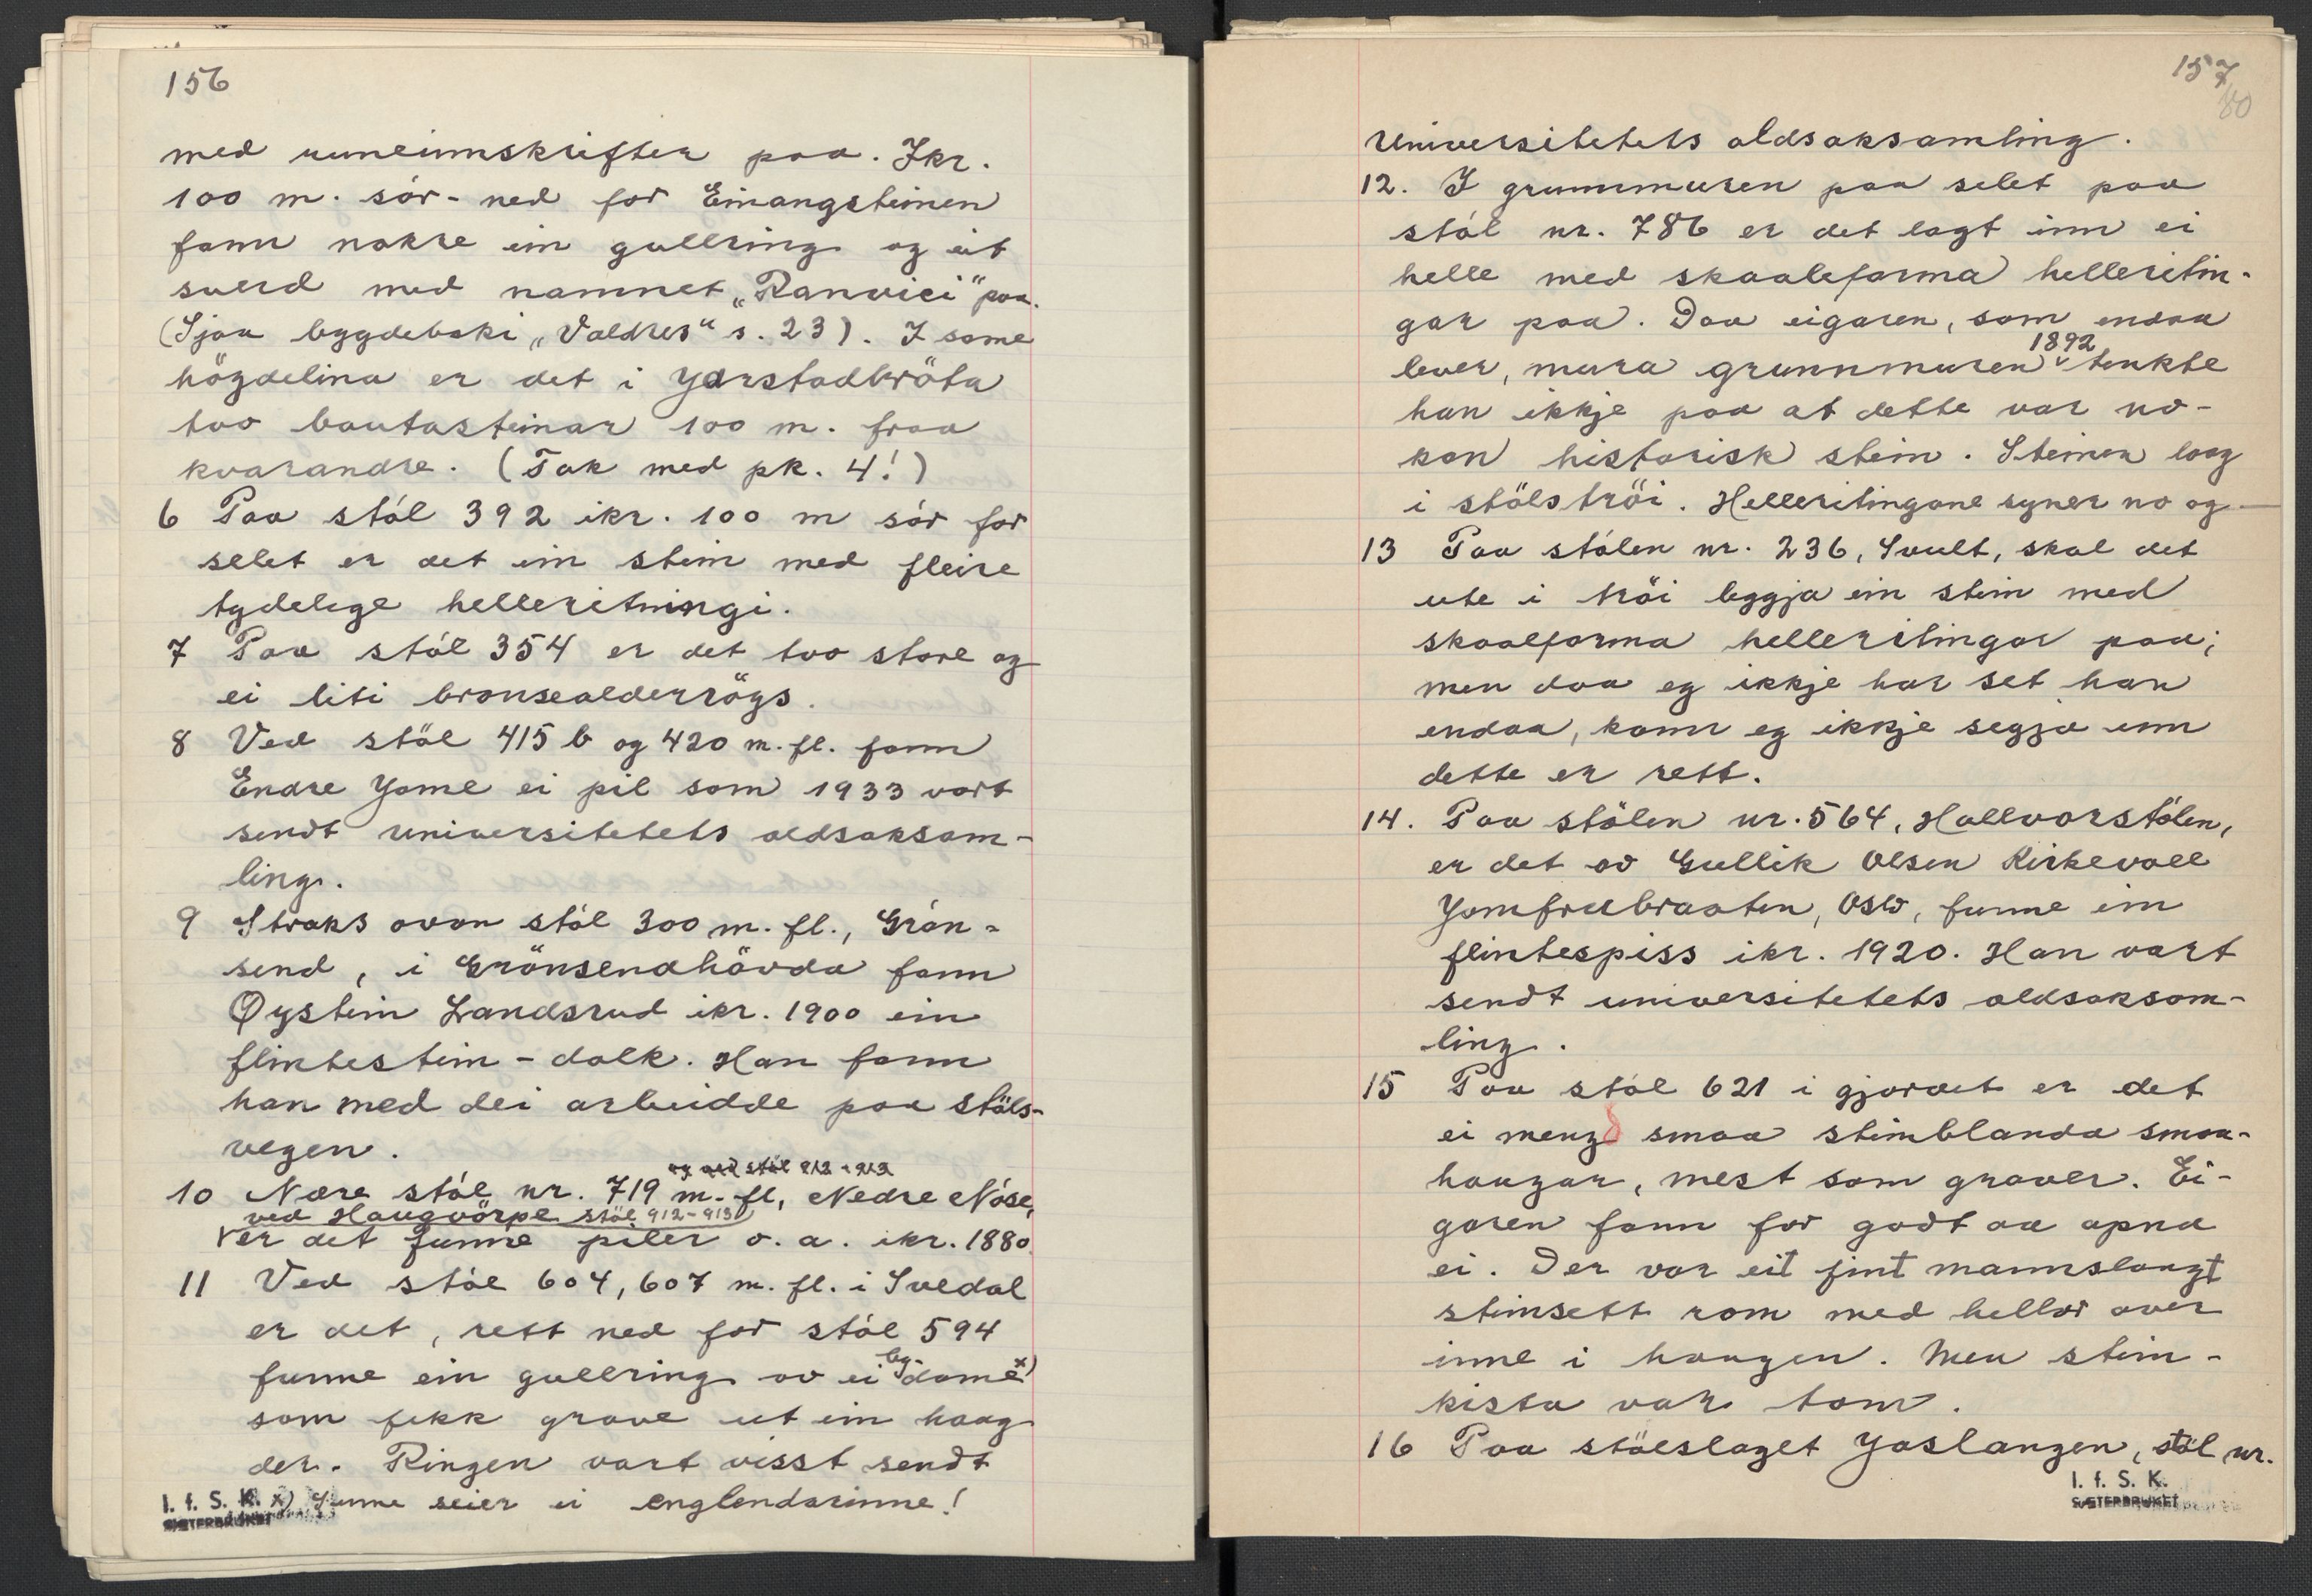 156
med runeinnskrifter paa. Ikr.
100 m. sör-ned for Einangsteinen
fann nokre ein gullring og eit
sverd med namnet „Ranvici" paa.
(Sjaa bygdeboki „Valdres" s. 23). I same
högdelina er det i Gardstadbröta
tvo bautasteinar 100 m. fraa
kvarandre. (Tak med pk. 4!)
6 Paa stöl 392 ikr. 100 m sör for
selet er det ein stein med fleire
tydelege helleritningi.
7 Paa stöl 354 er det tvo store og
ei liti bronsealderrögs.
8 Ved stöl 415 b og 420 m. fl. fann
Endre Jome ei pil som 1933 vart
sendt universitetets oldsaksam-
ling.
9 Straks ovan stöl 300 m. fl., Grön-
send, i Grönsendhövda fann
Øystein Landsrud ikr. 1900 ein
flintestein-dolk. Han fann
han med dei arbeidde paa stöls-
vegen.
og ved stöl 912-913
10 Nære stöl nr. 719 m. fl, Nedre Nöse,
ved Haugvörpe stöl 912-913
er det funne piler o. a. ikr. 1880.
11 Ved stöl 604, 607 m. fl. i Svedal
er det, rett ned for stöl 594
funne ein gullring av ei by-dame x)
som fekk grave ut ein haug
der. Ringen vart visst sendt
x) Sume seier ei englendarinne!
I. f. S. K.
SÆTERBRUKET
157
80
Universitetets oldsaksamling.
12. I grunnmuren paa selet paa
stöl nr. 786 er det lagt inn ei
helle med skaaleforma helleritin-
gar paa. Daa eigaren, som endaa
lever, mura grunnmuren 1892 tenkte
han ikkje paa at dette var no-
kon historisk stein. Steinen laag
i stölströi. Helleritingane syner no og
13 Paa stölen nr. 236, Svult, skal det
ute i tröi leggja ein stein med
skaalforma helleritingar paa;
men daa eg ikkje har set han
endaa, kann eg ikkje segja um
dette er rett.
14. Paa stölen nr. 564, Hallvorstölen,
er det av Gullik Olsen Kirkevoll
Jomfrubraaten, Oslo, funne ein
flintespiss ikr. 1920. Han vart
sendt universitetets oldsaksam-
ling.
15 Paa stöl 621 i gjordet er det
ei mengd smaa steinblanda smaa-
haugar, mest som graver. Ei-
garen fann for godt aa apna
ei. Der var eit fint mannslangt
steinsett rom med hellor over
inne i haugen. Men stein-
kista var tom.
16 Paa stölslaget Jaslangen, stöl nr.
I. f. S. K.
SÆTERBRUKET